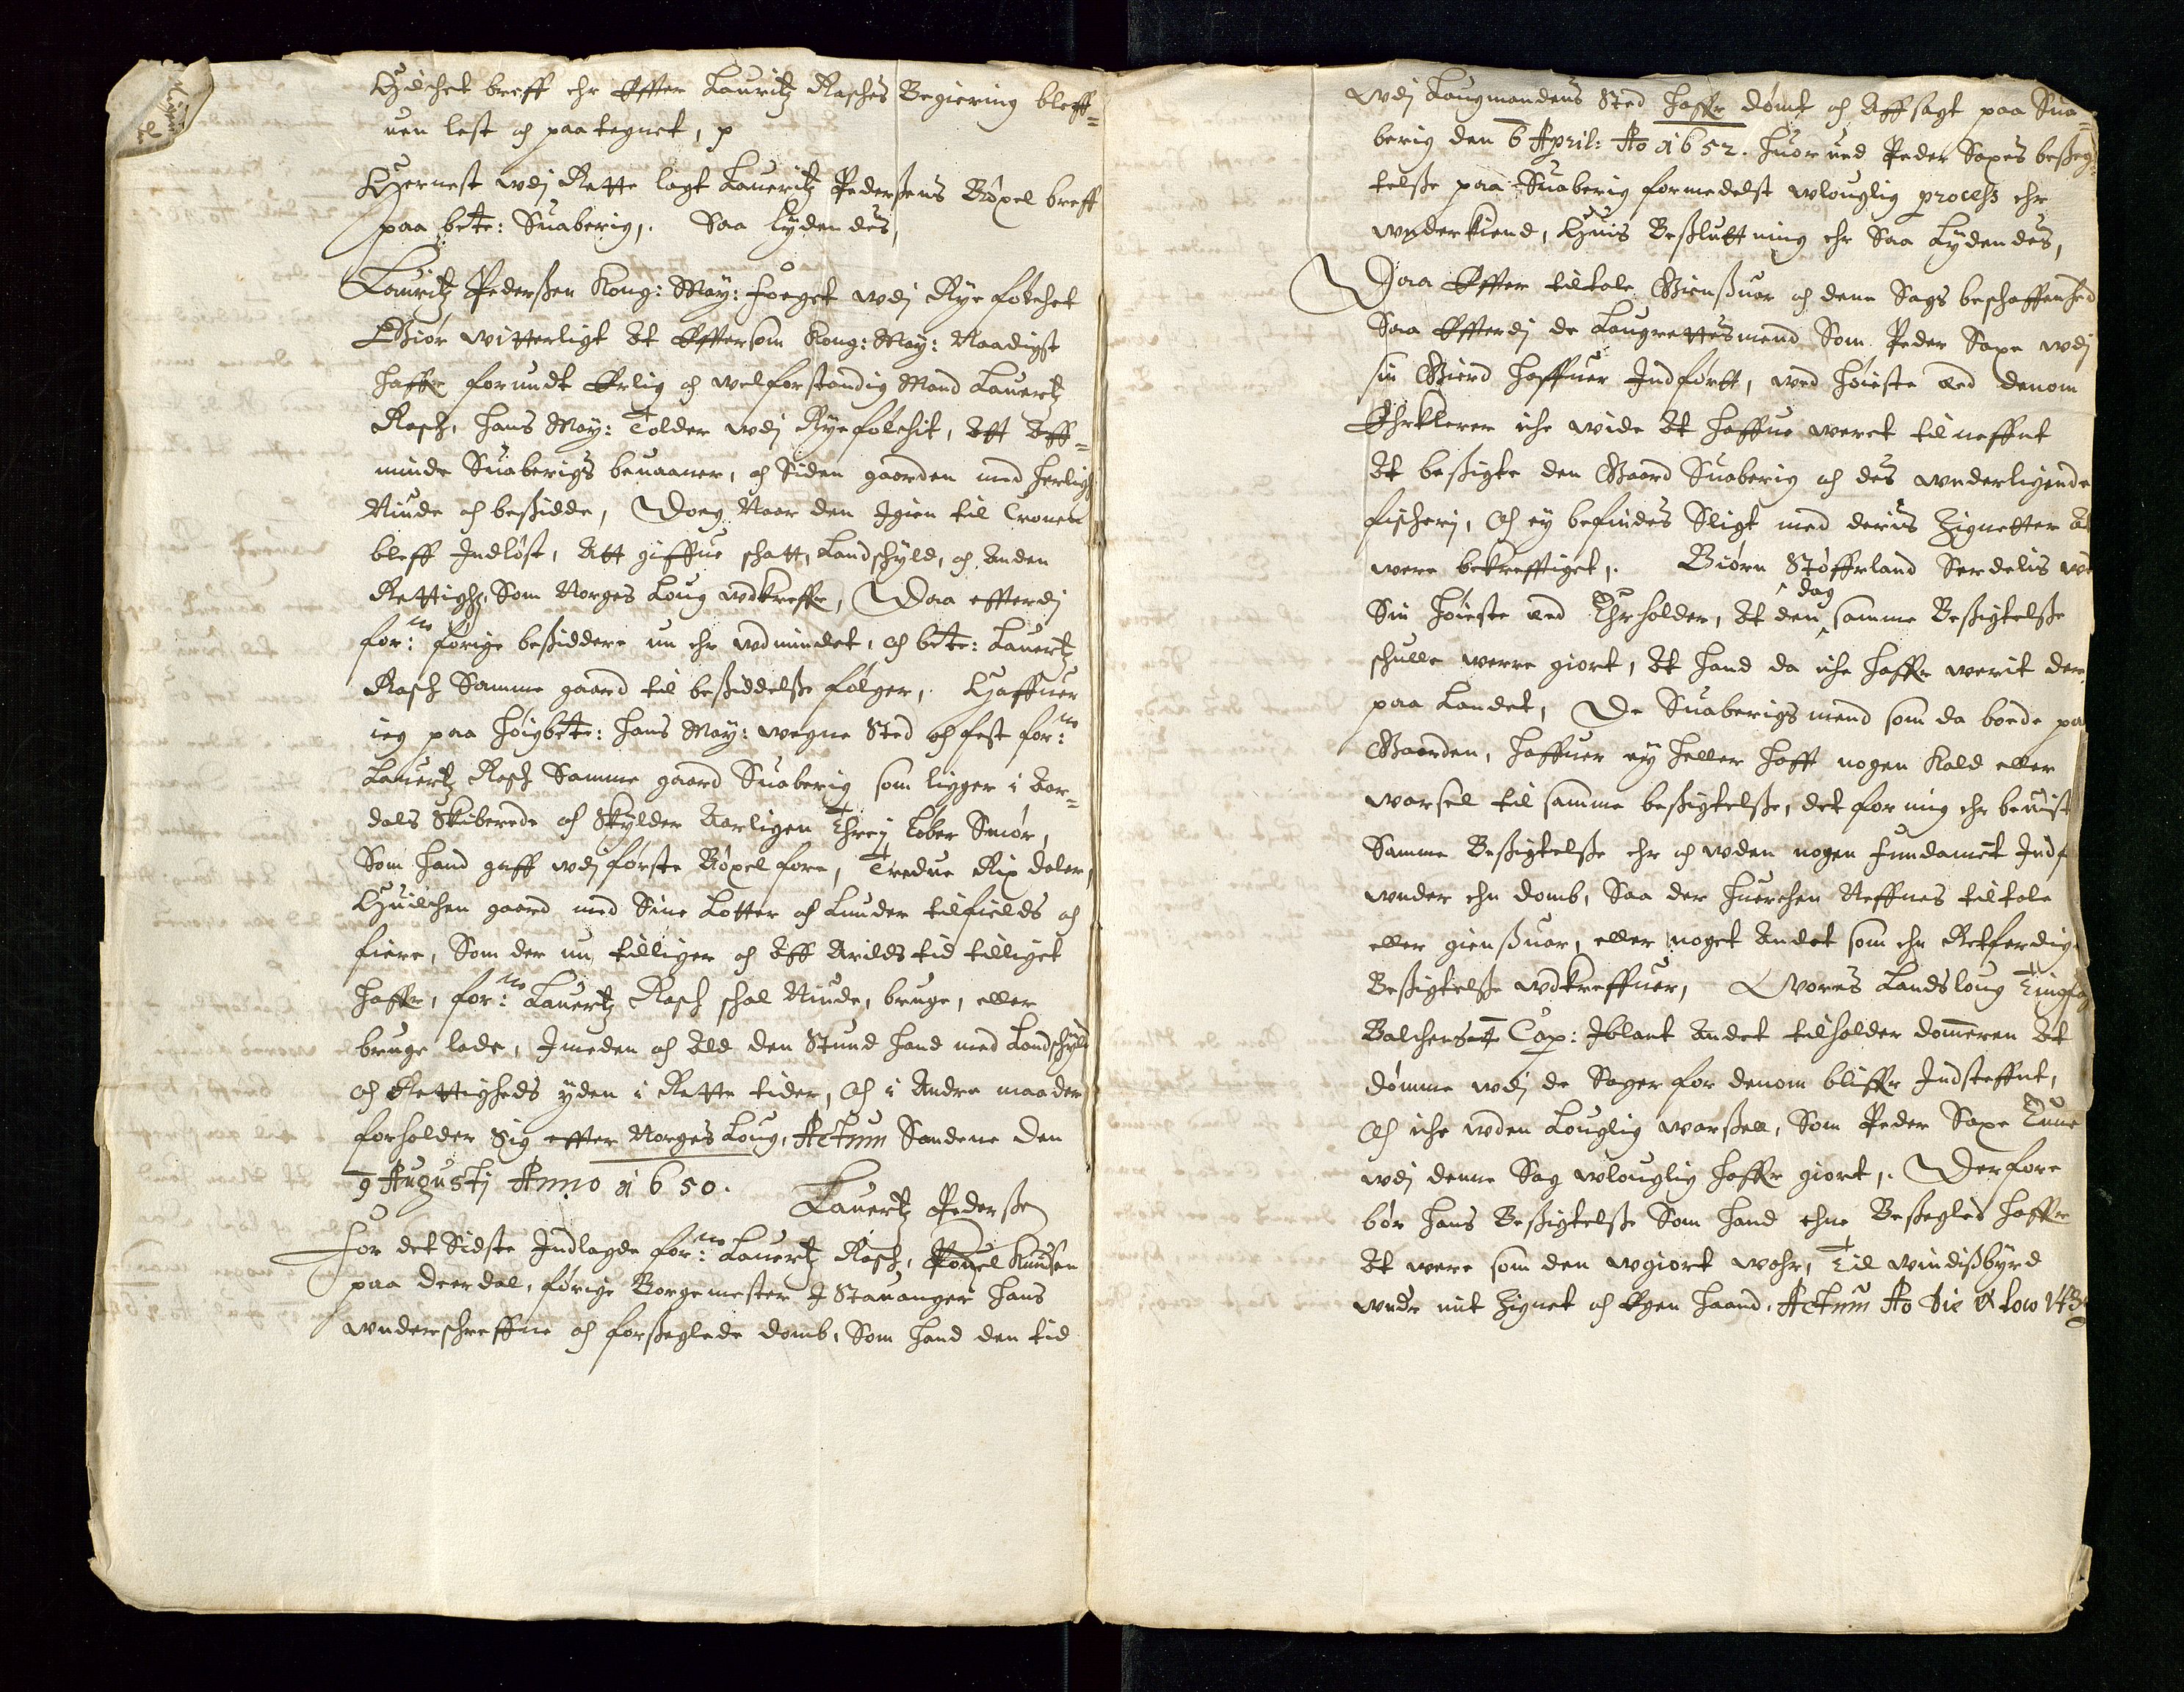 Huilchet breff ehr Effter Lauritz Rasches Begiering bleff=
uen lest och paategnet, p
Hernest wdj Rette lagt Laueritz Pederßens Böxel breff
paa bete: Suaberig, Saa lydendes,
Lauritz Pederßen Kong: May: foeget wdj Ryefölchet
Giör witterligt At Efftersom Kong: May: Naadigst
haffr forundt Erlig och welforstandig Mand Lauertz
Rasch, hans May: Tolder wdj Ryefölchit, Att Aff=
minde Suaberigs beuaaner, och Siden gaarden med herligh
Niude och beßidde, Doeg Naar den Igien til Cronen
bleff Indlöst, Att giffue schatt, Landschyld, och Anden
Rettigh, Som Norges Loug wdkreffr, Daa effterdj
for:ne förige beßiddere nu ehr wdmindet, och bete: Lauertz
Rasch Samme gaard til beßiddelße fölger, Haffuer
ieg paa höigbete: hans May: wegne Sted och fest for:ne
Lauertz Rasch Samme gaard Suaberig som ligger i Aar=
dals Skiberede och Skylder Aarligen Threj Löber Smör,
Som hand gaff wdj förste Böxel fore, Tredue Rix daler,
Huilchen gaard med Sine Lotter och Lunder tilfields och
fiere, Som der nu tilliger och Aff Arilds tid tilliget
haffr, for:ne Lauertz Rasch schal Niude, bruge, eller
bruge lade, Imeden och Ald den Stund hand med Landschyld
och Rettigheds yden i Rette tider, Och i Andre maader
forholder Sig effter Norges Loug, Actum Sandene den
9 Augustj Anno 1650.
Lauertz Pederße
For det Sidste Indlagde for:ne Lauertz Rasch, Pouel Knudsen
paa Deerdal, förige Borgemester I Stauanger hans
wnderschreffne och forßeglede domb, Som hand den tid
wdj Laugmandens Sted haffr dömt och Affsagt paa Sua=
berig den 6 April: Ao 1652. huorued Peder Saxes beßeg=
telße paa Suaberig formedelst wlouglig process ehr
wnderkiend, Huis Beßluttning ehr Saa Lydendes,
Daa Effter tiltale Gienßuar och denne Sags beschaffenhed
Saa Effterdj de Laugrettesmend Som Peder Saxe wdj
sin Gierd haffuer Indförtt, wed höieste Eed denom
Ehrklerer iche wide At haffue weret tilneffnt
At beßigte den Gaard Suaberig och des wnderligende
fischerj, Och ey befindes Sligt med deris Zignetter At
were bekrefftiget, Biörn Stöffrland Serdelis
Sin höieste eed Ehrholder, At den dag samme Beßigtelße
schulle werre giort, At hand da iche haffr werit der
paa Landet, De Suaberigs mend som da boede paa
Gaarden, haffuer ey heller hafft nogen Kald eller
warsel til samme beßigtelße, det for mig ehr beuist
Samme Beßigtelße ehr och uden nogen fundament Indf
wnder ehn domb, Saa der huerchen Neffnes tiltale
eller gienßuar, eller noget Andet som ehn Retferdig
Beßigtelße wdkreffuer, Wores Landsloug Tingfar
Balchens Cap: Iblant Andet tilholder domeren At
dömme wdj de Sager for denom bliffr Indsteffnt,
Och iche uden Louglig warßell, Som Peder Saxe
wdj denne Sag wlouglig haffr giort, Derfore
bör hans Beßigtelße Som hand ehne Beßegled haffr
At were som den wgiort wohr, Til windißbyrd
wndr mit Zignet och Egen haand, Actum Ao die